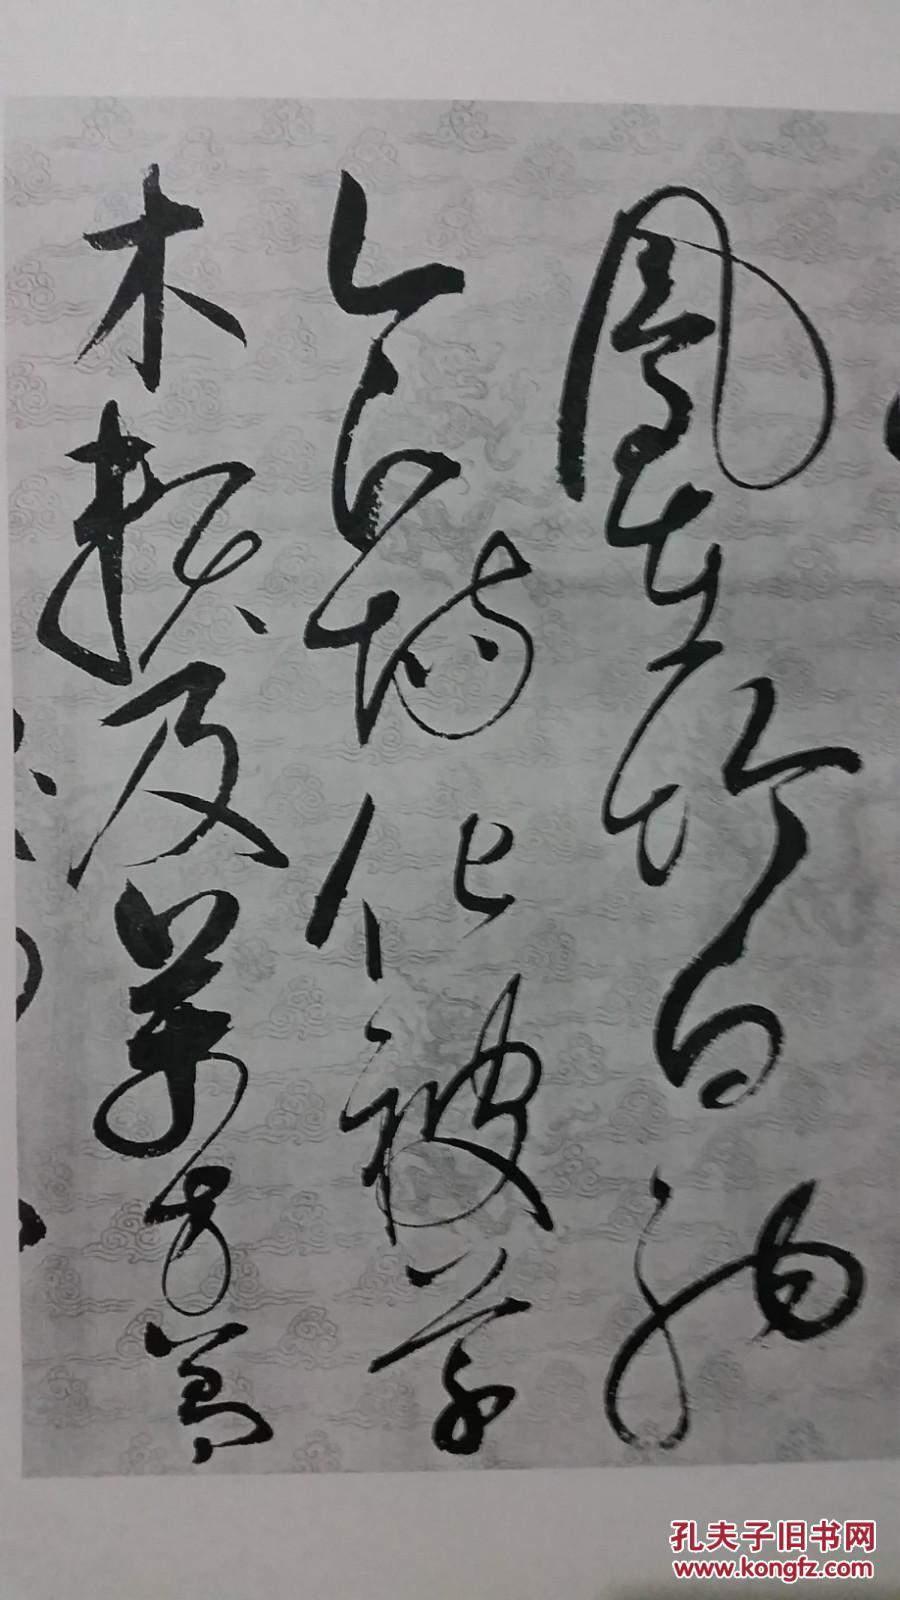 鳳在竹白駒
食場化被草
木賴及萬方蓋
孔夫子旧书网
www.kongfz.com